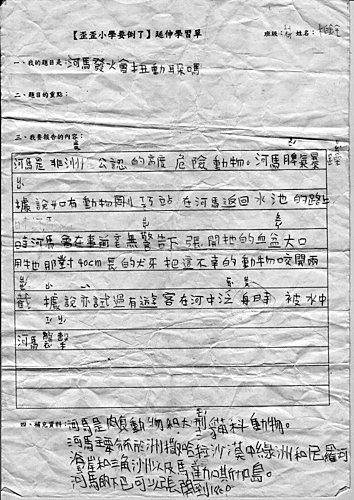 【歪歪小學要倒了】延伸學習單
班級: 姓名:
一、我的題目是:河馬發火會扭動耳嗎
二、題目的重點:
三、我要報告的內容:
河馬是非洲公認的高度危險動物。河馬脾氣暴
據說如有動物剛巧站在河馬返回水池的路上
時河馬會在事前毫無警告下張開牠的血盆大口
用牠那對40cm長的犬牙把這不幸的動物咬開兩
截據說亦試過有遊客在河中泛舟時被水中
河馬襲擊
四、補充資料:河馬是肉食動物和大型貓科動物。
河馬 非洲撒哈拉沙漠中綠洲和尼羅河
沿岸和三角洲以及馬達加斯加島。
河馬的下巴可以張開到